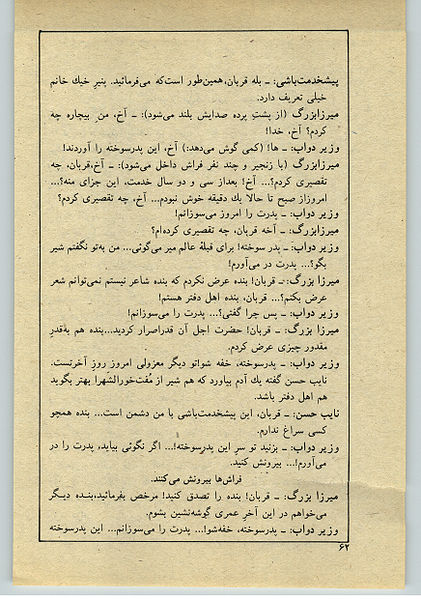 پیشخدمت‌باشی: ــ بله قربان، همین‌طور است‌که می‌فرمائید. پنیر خیك خانم
خیلی تعریف دارد.
میرزابزرگ (از پشتِ پرده صدایش بلند می‌شود): ــ آخ، من بیچاره چه
کردم؟ آخ، خدا!
وزیر دواب: ــ ها! (کمی گوش می‌دهد:) آخ، این پدرسوخته را آوردند!
میرزابزرگ (با زنجیر و چند نفر فراش داخل می‌شود): ــ آخ، قربان، چه
تقصیری کردم؟... آخ! بعداز سی و دو سال خدمت، این جزای منه؟...
امروزاز صبح تا حالا یك دقیقه خوش نبودم... آخ، چه تقصیری کردم؟
وزیر دواب: ــ پدرت را امروز می‌سوزانم!
میرزابزرگ: ــ آخه قربان، چه تقصیری کرده‌ام؟
وزیر دواب: ــ پدر سوخته! برای قبلهٔ عالم میر می‌گوئی... من به‌تو نگفتم شیر
بگو؟... پدرت در می‌آورم!
میرزا بزرگ: ــ قربان! بنده عرض نکردم که بنده شاعر نیستم نمی‌توانم شعر
عرض بکنم؟... قربان، بنده اهل دفتر هستم!
وزیر دواب: ــ پس چرا گفتی؟... پدرت را می‌سوزانم!
میرزا بزرگ: ــ قربان! حضرت اجل آن قدراصرار کردید...بنده هم به‌قدرِ
مقدور چیزی عرض کردم.
وزیر دواب: ــ پدرسوخته، خفه شو!تو دیگر معزولی امروز روز آخرتست.
نایب حسن گفته یك آدم بیاورد که هم شیر از مُفت‌خورالشهرا بهتر بگوید
هم اهل دفتر باشد.
نایب حسن: ــ قربان، این پیشخدمت‌باشی با من دشمن است... بنده همچو
کسی سراغ ندارم.
وزیر دواب: ــ بزنید تو سرِ این پدرسوخته!... اگر نگوئی بیاید، پدرت را در
می‌آورم!... بیرونش کنید.
فراش‌ها بیرونش می‌کنند.
میرزا بزرگ: ــ قربان! بنده را تصدق کنید! مرخص بفرمائید،بنده دیگر
می‌خواهم در این آخر عمری گوشه‌نشین بشوم.
وزیر دواب: ــ پدرسوخته، خفه‌شو!... پدرت را می‌سوزانم... این پدرسوخته
۶۲